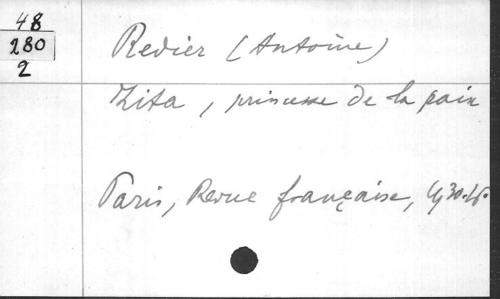 48
280
2
Redier (Antoine)
Zita, princesse de la paix
Paris, Revue française,